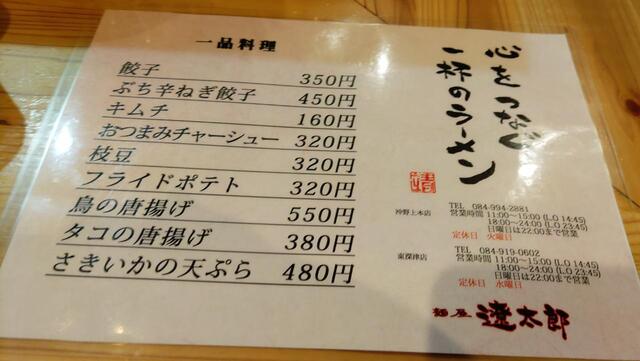 一品料理
餃子 350円
ぶち辛ねぎ餃子 450円
キムチ 160円
おつまみチャーシュー 320円
枝豆 320円
フライドポテト 320円
鳥の唐揚げ 550円
タコの唐揚げ 380円
さきいかの天ぷら 480円
心をつなぐ
一杯のラーメン
沖野上本店
TEL 084-994-2881
営業時間 11:00~15:00 (L.O 14:45)
18:00~24:00 (L.O 23:45)
日曜日は22:00まで営業
定休日 火曜日
東深津店
TEL 084-919-0602
営業時間 11:00~15:00 (L.O 14:45)
18:00~24:00 (L.O 23:45)
日曜日は22:00まで営業
定休日 水曜日
麺屋 遼太郎